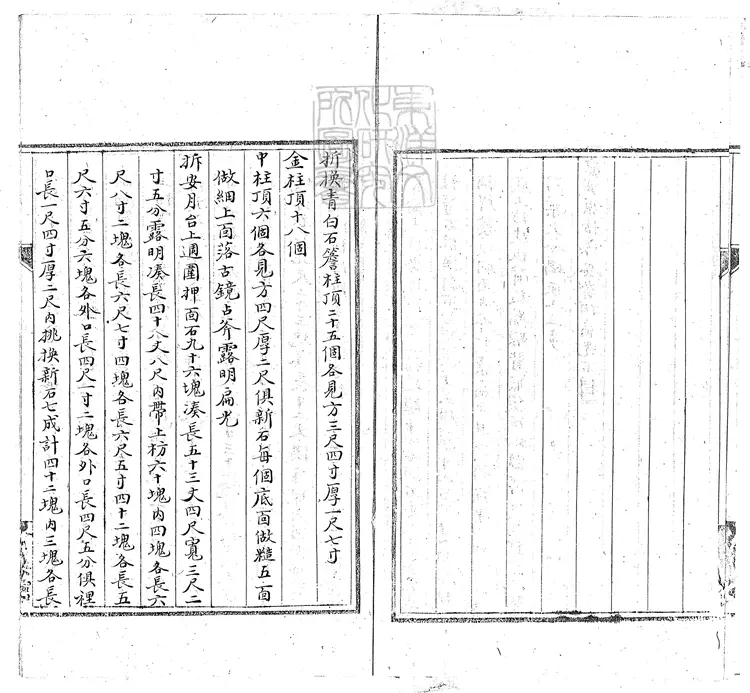 拆换青白石簷柱頂二十五個各見方三尺四寸厚一尺七寸
金柱頂十八個
中柱頂六個各見方四尺厚二尺俱新石每個底面做糙五面
做細上面落古鏡占斧露明扁光
拆安月台上週圍押面石九十六塊凑長五十三丈四尺寬三尺二
寸五分露明凑長四十八丈八尺内帶上枋六十塊内四塊各長六
尺八寸二塊各長六尺七寸四塊各長六尺五寸四十二塊各長五
尺六寸五分六塊各外口長四尺一寸二塊各外口長四尺五分俱裡
口長一尺四寸厚二尺内挑换新石七成計四十二塊内三塊各長